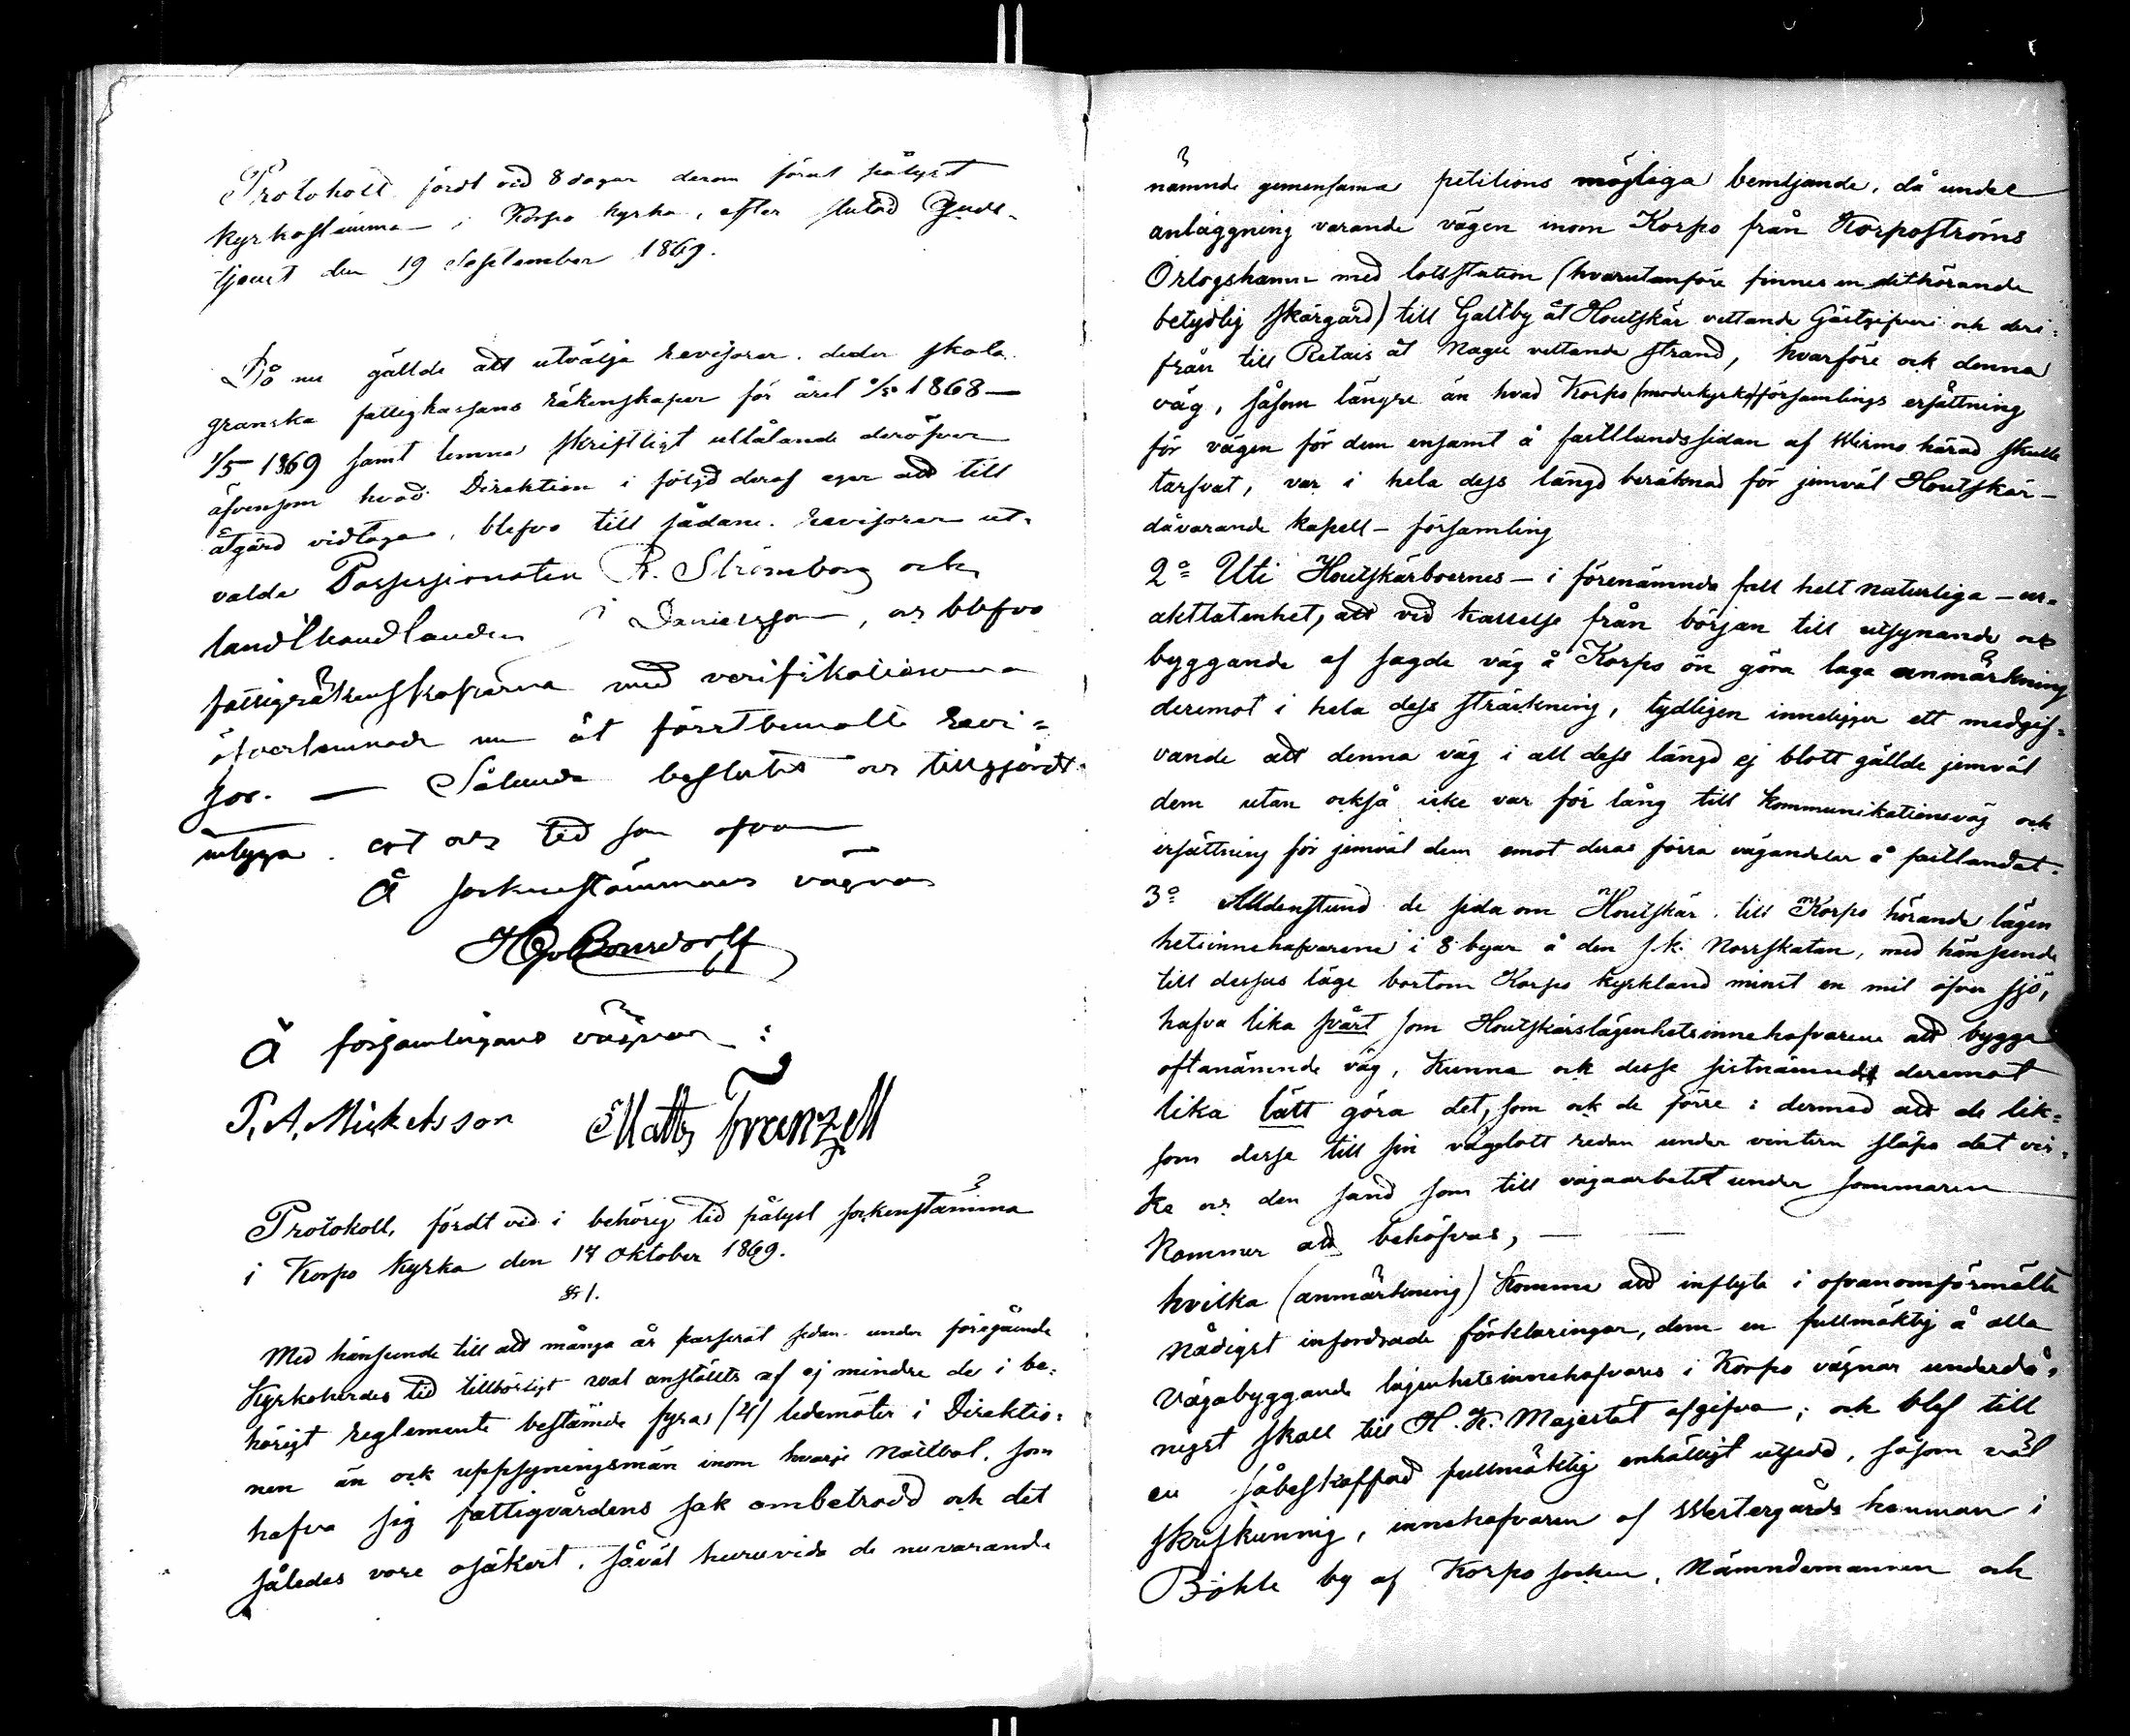 Protokoll fördt vid 8 dagar derom förut pålyst
kyrkostämma i Korpo kyrka, efter slutad Guds-
tjenst den 19 September 1869.
Då nu gällde att utvälja revisorer, deder skola
granska fattigkassans räkenskaper för året 1/5 1868 —
1/5 1869 samt lemna skriftligt utlåtande deröfver
äfvensom hvad Direktion i följd deraf eger att till
åtgärd vidtaga, blefvo till sådane revisorer ut-
valde Possessionaten R. Strömborg och
landthandlanden J Danielsson, och blefvo
fattigräkenskaperna med verifikationerna
öfverlemnade nu åt förstbemälte revi-
sor. — Sålunda beslutit och tillgjordt
intyga ort och tid som ofvan
Å sockenstämmans vägnar
Å församlingens vägnar :
P. A. Mickelsson Matts Franzell
Protokoll, fördt vid i behörig tid pålyst sockenstämma
i Korpo Kyrka den 17 Oktober 1869.
§ 1.
Med hänseende till att många år passerat sedan under föregående
Kyrkoherdes tid tillbörligt val anstälts af ej mindre de i be-
hörigt reglemente bestämde fyra (4) ledamöter i Direktio-
nen än ock uppsyningsmän inom hvarje Notlval, som
hafva sig fattigvårdens sak ombetrodd och det
således vore osäkert, såväl huruvida de nuvarande
nämnde gemensama petitions möjliga bemötande, då under
anläggning varande vägen inom Korpo från Korpoströms
Örlogshamn med lotsstation (hvarutanföre finnes en dithörande
betydlig skärgård) till Galtby åt Houtskär vettande Gästgifveri och deri-
från till Retais åt Nagu vettande strand, hvarföre ock denna
väg, såsom längre än hvad Korpo (moderkyrko)församlings ersättning
för vägen för dem ensamt å fastlandssidan af Wirmo härad skulle
tarfvat, var i hela dess längd beräknad för jemväl Houtskär —
dåvarande kapell - församling
2o Uti Houtskärboernes — i förenämnda fall helt naturliga — ur-
aktlåtenhet, att vid kallelse från början till utsynande och
byggande af sagde väg å Korpo ön göra laga anmärkning
deremot i hela dess sträckning, tydligen inneligger ett medgif-
vande att denna väg i all dess längd ej blott gällde jemväl
dem utan också icke var för lång till kommunikationsväg och
ersättning för jemväl dem emot deras förra vägandelar å fastlandet.
3o Alldenstund de sida om Houtskär till Korpo hörande lägen
hetsinnehafvarene i 8 byar å den s.k. Norrskatan, med hänseende
till dessas läge bortom Korpo kyrkland minst en mil öfver sjö,
hafva lika svårt som Houtskärslägenhetsinnehafvarene att bygga
oftanämnde väg, kunna ock desse sistnämnde deremot
lika lätt göra det, som ock de förre : dermed att de lik-
som desse till sin väglott redan under vintern släpa det vir-
ke och den sand som till vägaarbetet under sommaren
kommer att behöfvas, —
hvilka (anmärkning) komma att inflyta i ofvanomförmälte
nådigst infordrade förklaringar, dem en fullmäktig å alla
vägabyggande lägenhetsinnehafvares i Korpo vägnar underdå-
nigst skall till H. K. Majestät afgifva; och blef till
en såbeskaffad fullmäktig enhälligt utsedd, såsom väl
skrifkunnig, innehafvaren af Westergårds hemman i
Böhle by af Korpo socken, Nämndemannen och